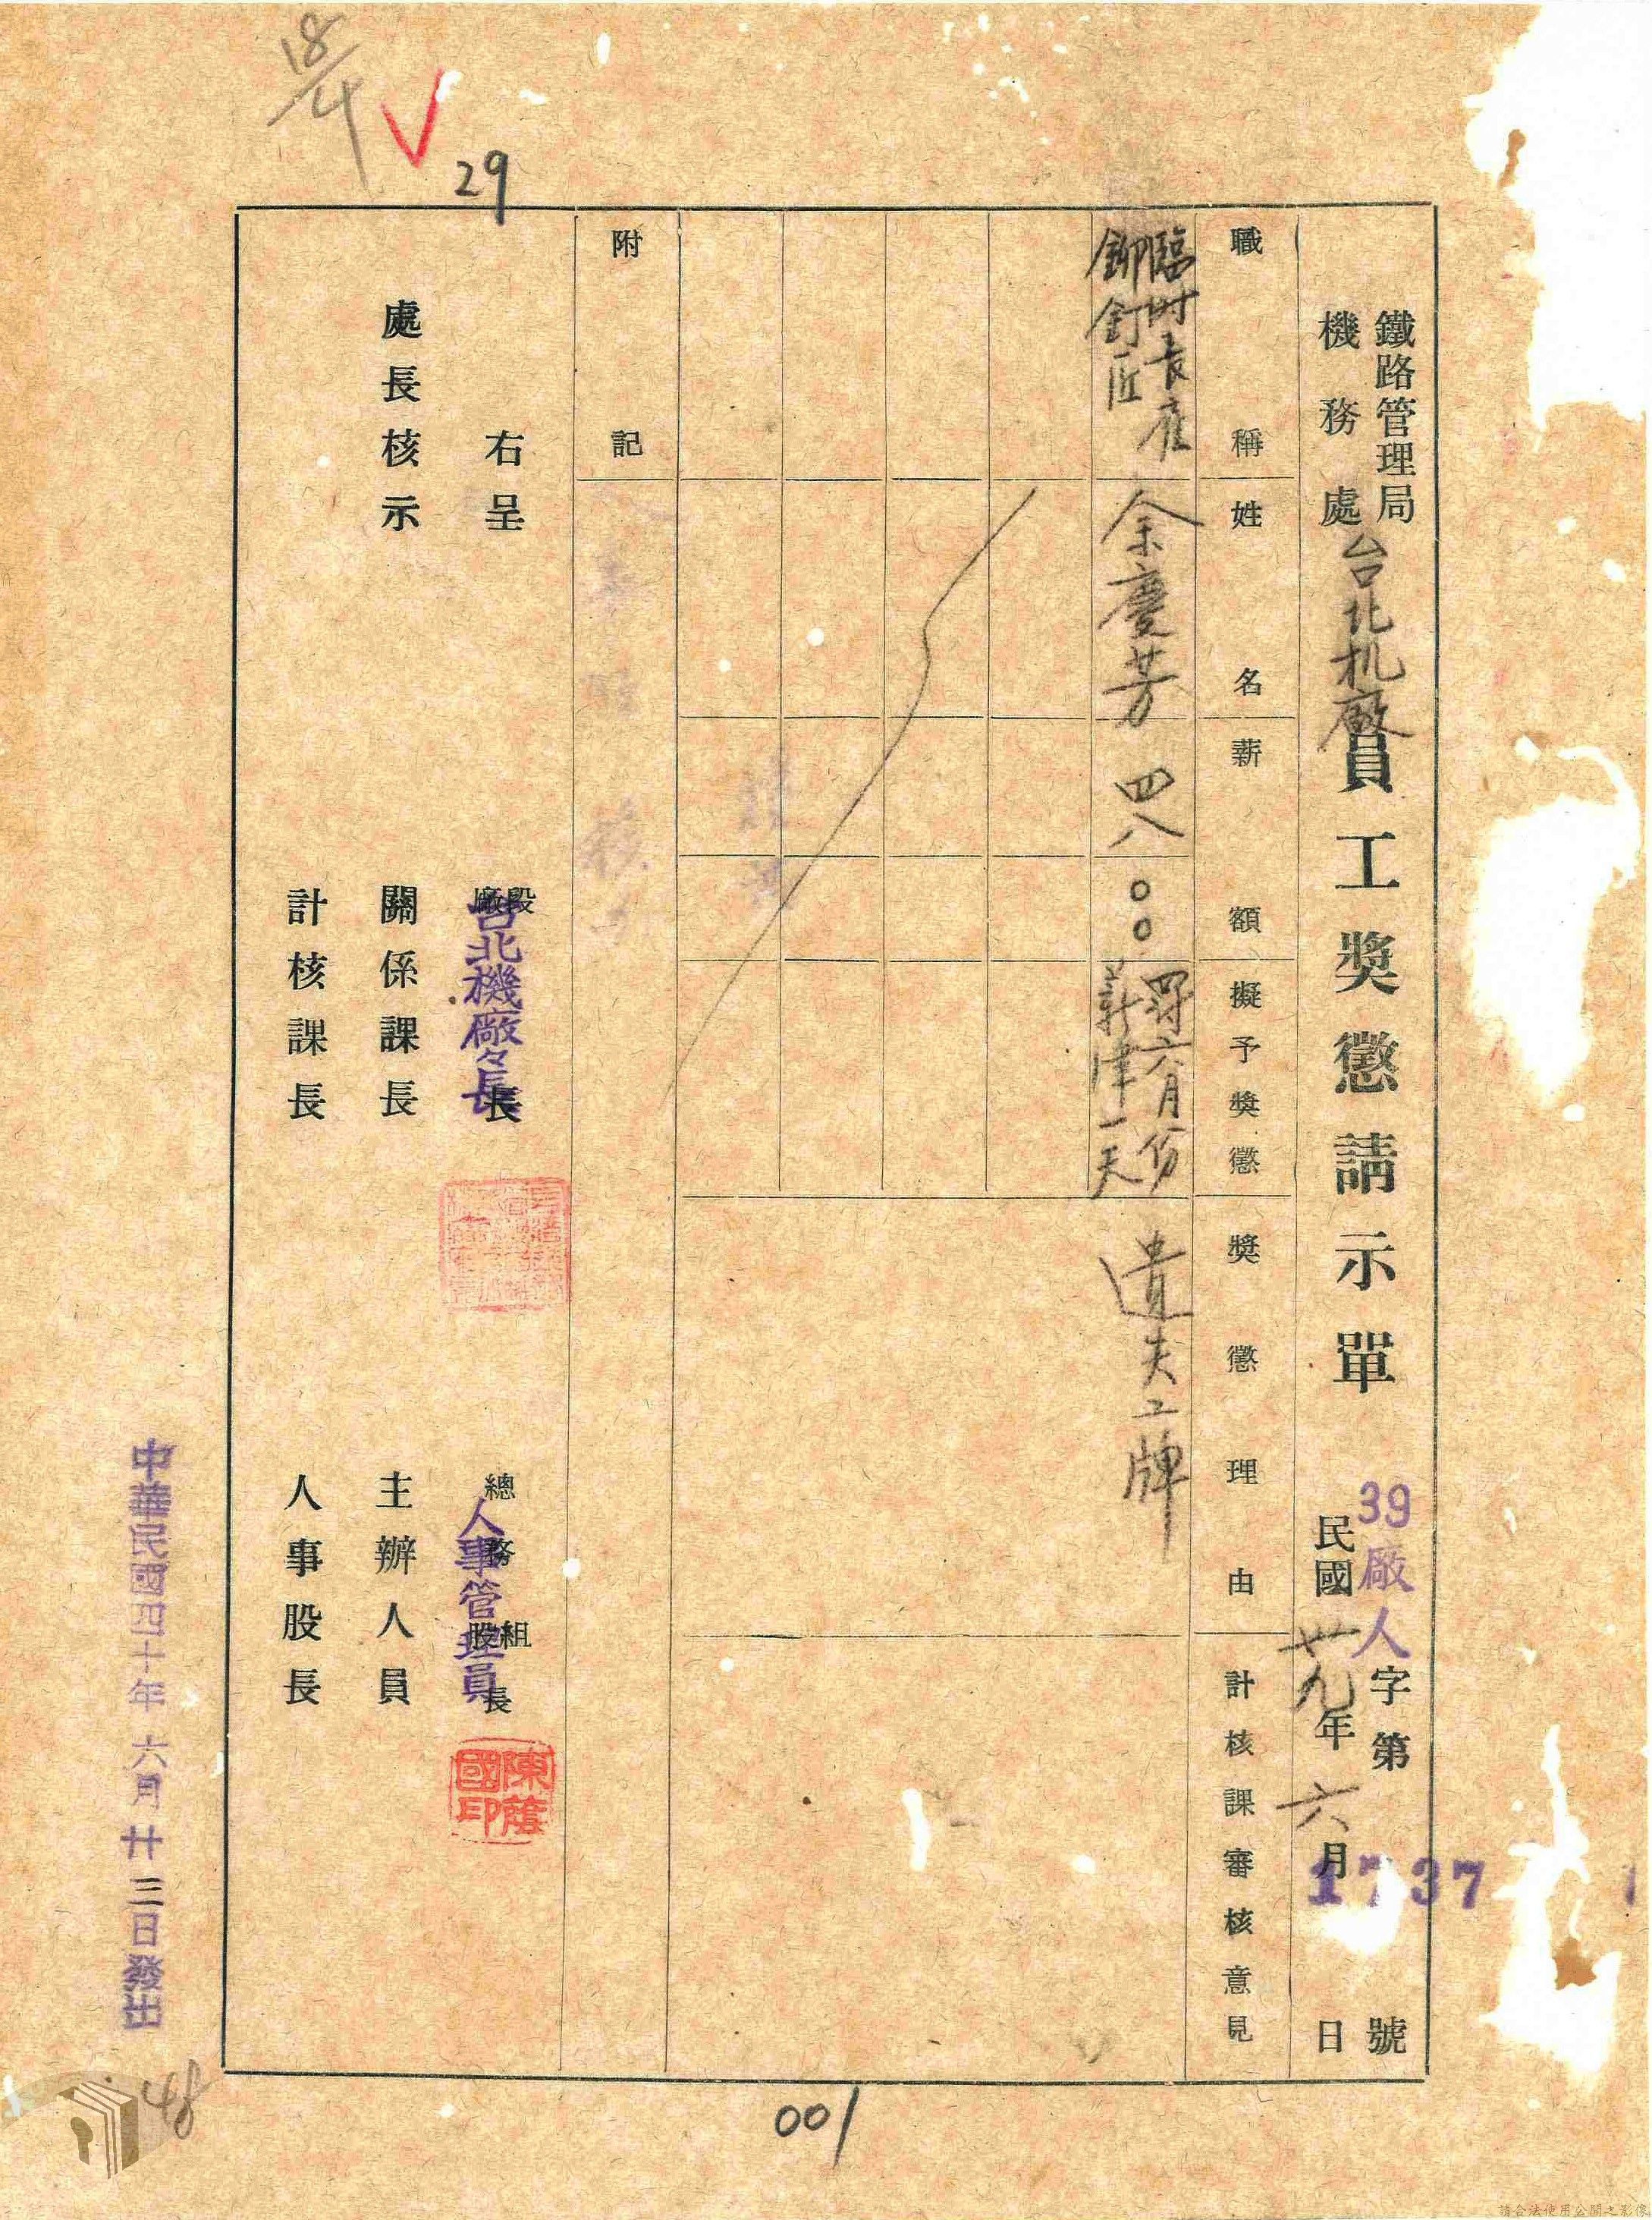 鐵路管理局
機務處
台北机廠
員工獎懲請示單
39廠人字第1737號
民國卅九年六月 日
職稱
姓名
薪額
擬予獎懲
獎懲理由
計核課審核意見
臨時長雇
鉚釘匠
余慶芳
四八〇〇
罰六月份
薪津一天
遺失工牌
附記
右呈
段廠長
台北機廠々長
總務組股長
人事管理員
陳蔭國印
處長核示
關係課長
主辦人員
計核課長
人事股長
中華民國四十年六月廿三日發出
29
18/4
48
001
請合法使用公開之影像